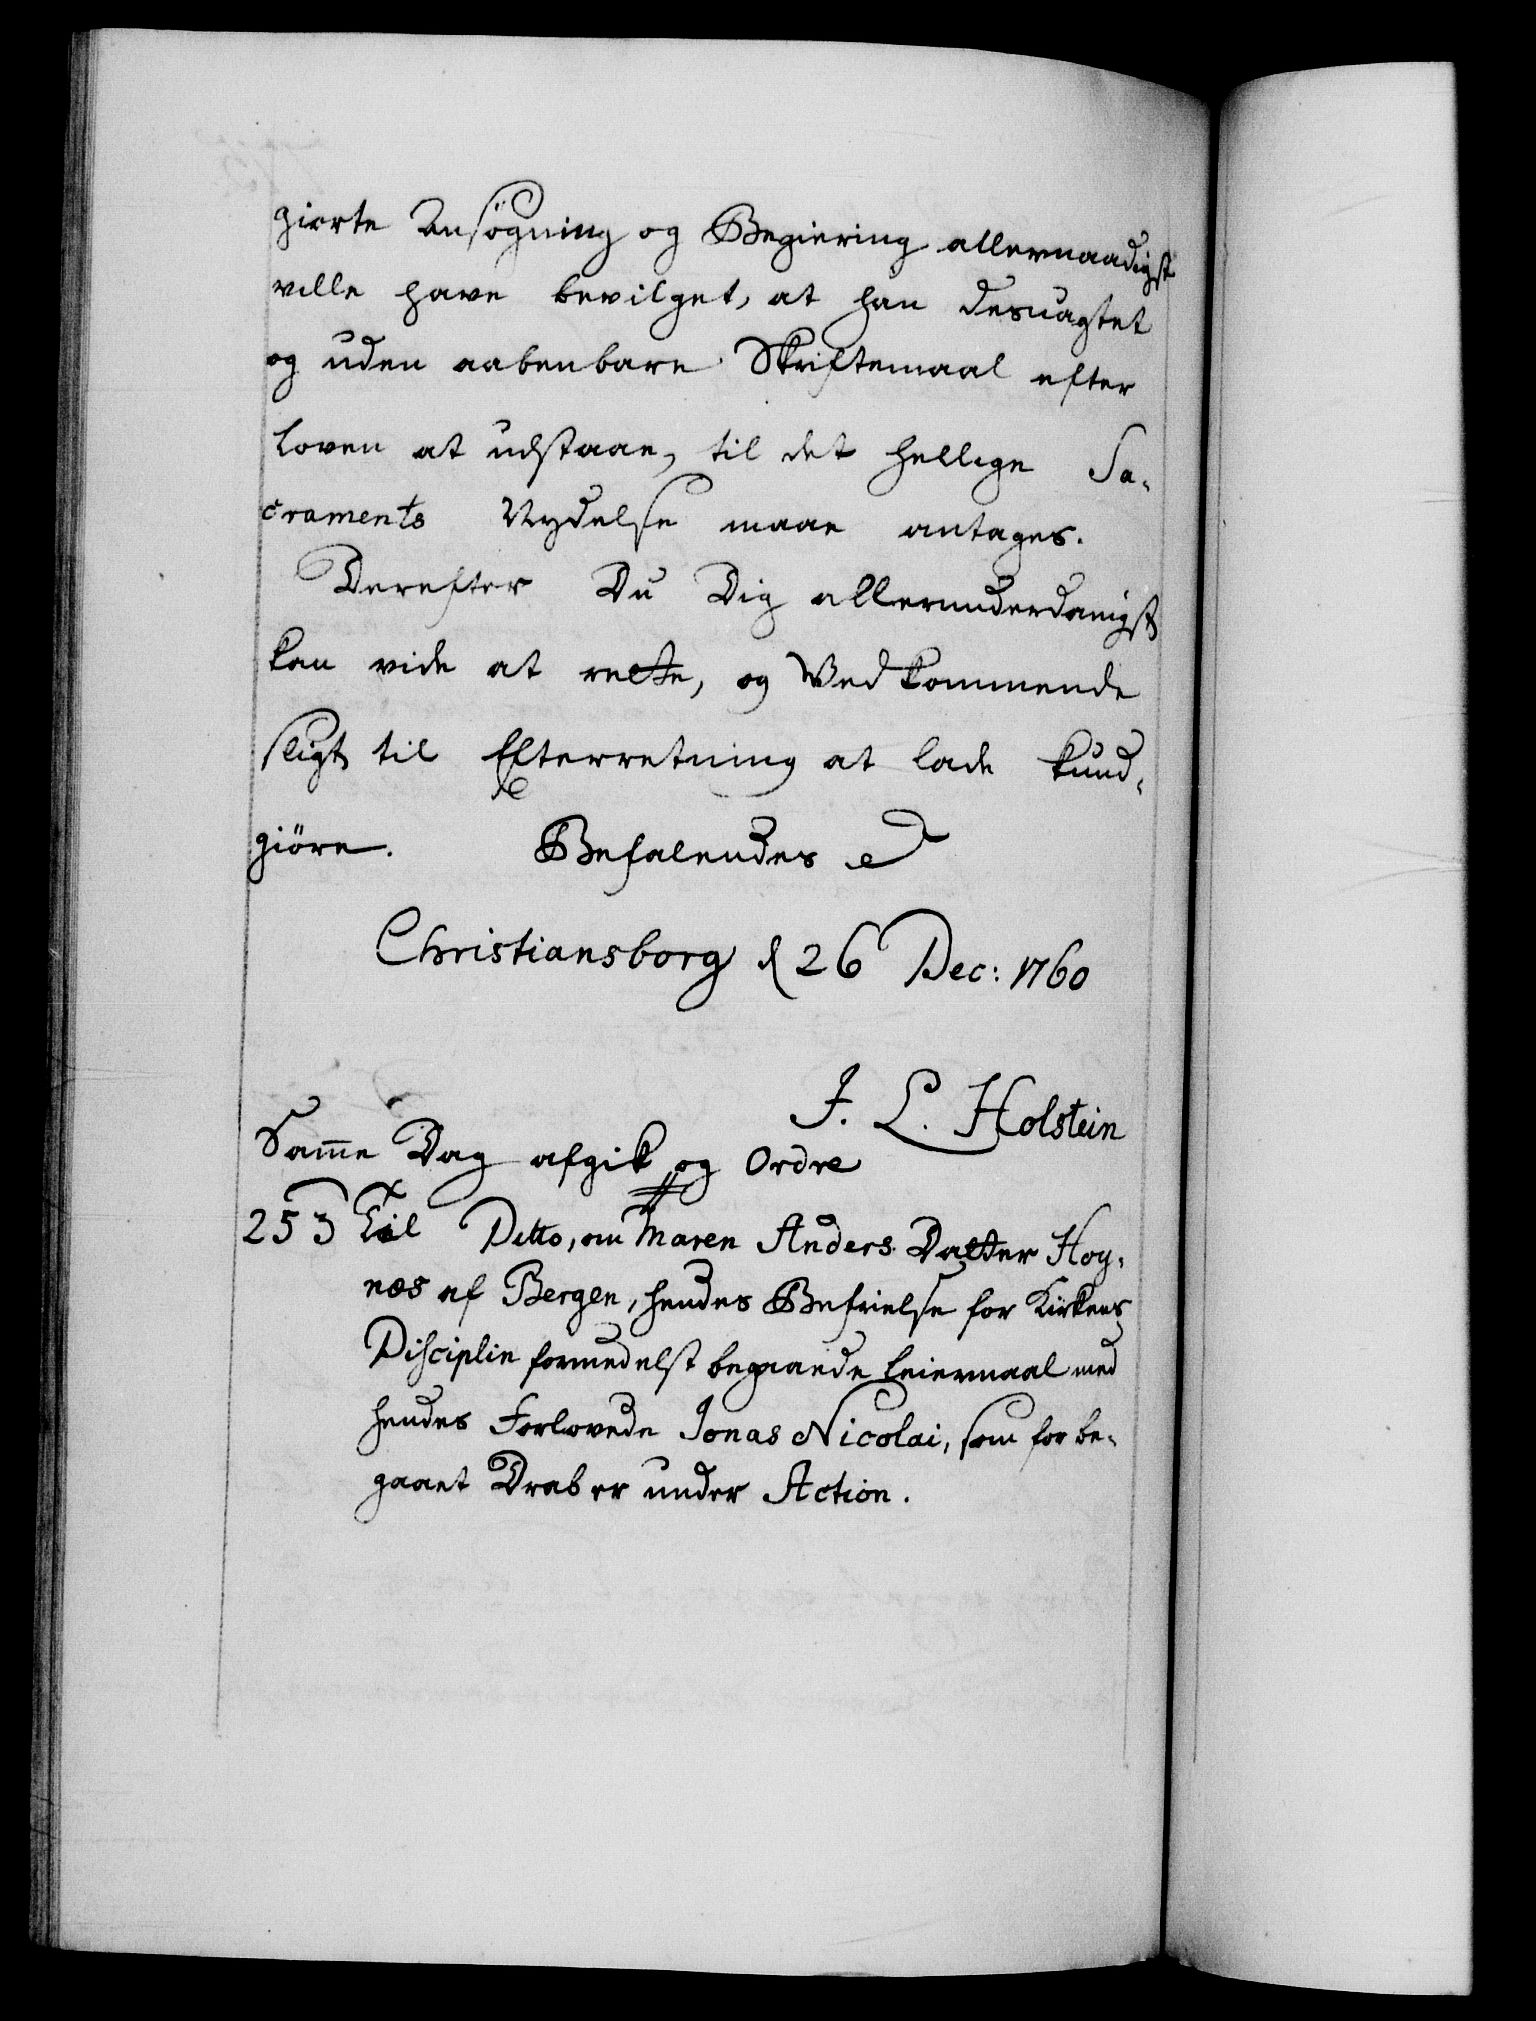 giorte Ansögning og Begiering allernaadigst
ville have bevilget, at han desuagtet
og uden aabenbare Skriftemaal efter
Loven at udstaae, til det hellige Sa-
craments Nydelse maae antages.
Derefter Du Dig allerunderdanigst
kan vide at rette, og Vedkommende
sligt til Efterretning at lade kund-
giöre. Befalendes
Christiansborg d 26 Dec: 1760
J. L. Holstein
Sam̄e Dag afgik og Ordre
253 Til Ditto, om Maren Anders Datter Hoy-
næs af Bergen, hendes Befrielse for Kirkens
Disciplin formedelst begaaede Leiermaal med
hendes Forlovede Jonas Nicolai, som for be-
gaaet Drab er under Action.